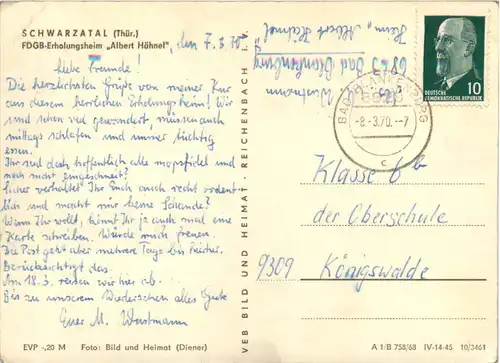 SCHWARZATAL (Thür.)
FDGB-Erholungsheim „Albert Hähnel", den 7.3.70
Liebe Freunde!
Die herzlichsten Grüße von meiner Kur
aus diesem herrlichen Erholungsheim! Wir
sind schon viel gewandert, müssen auch
mittags schlafen und immer tüchtig
essen.
Ihr seid doch hoffentlich alle mopsfidel und
noch nicht eingeschneit?
Sicher verhaltet Ihr Euch auch recht ordent-
lich und macht mir keine Schande?
Wenn Ihr wollt, könnt Ihr ja auch mal eine
Karte schreiben. Würde mich freuen.
Die Post geht aber mehrere Tage bis hierher.
Berücksichtigt das.
Am 18.3. reisen wir hier ab.
Bis zu unserem Wiedersehen alles Gute
Euer M. Wustmann
EVP -,20 M Foto: Bild und Heimat (Diener)
VEB BILD UND HEIMAT · REICHENBACH i. V.
Wustmann
6823 Bad Blankenburg
Heim „Albert Hähnel"
DEUTSCHE
DEMOKRATISCHE REPUBLIK
10
-8.-3.70.--7
c
Klasse 6
der Oberschule
9309 Königswalde
A 1/B 758/68 IV-14-45 10/3461